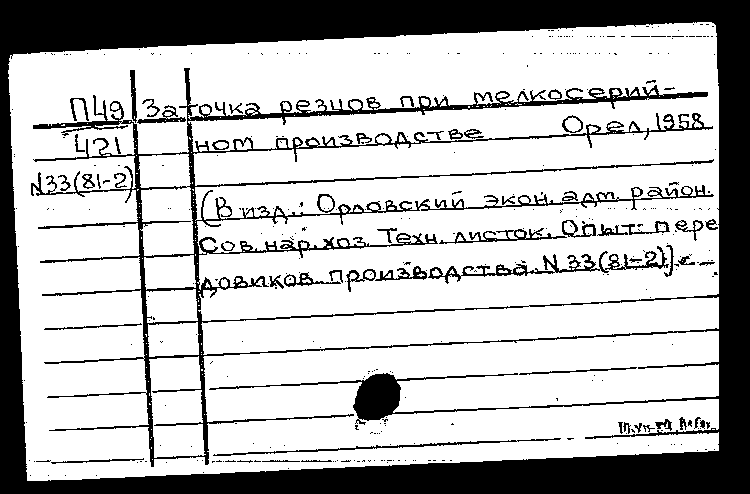 П49 Заточка резцов при мелкосерий-
421 ном производстве Орел, 1958
N33(81-2)
(В изд.: Орловский экон. адм. район.
Сов. нар. хоз. Техн. листок. Опыт пере
довиков производства. N 33(81-2)].